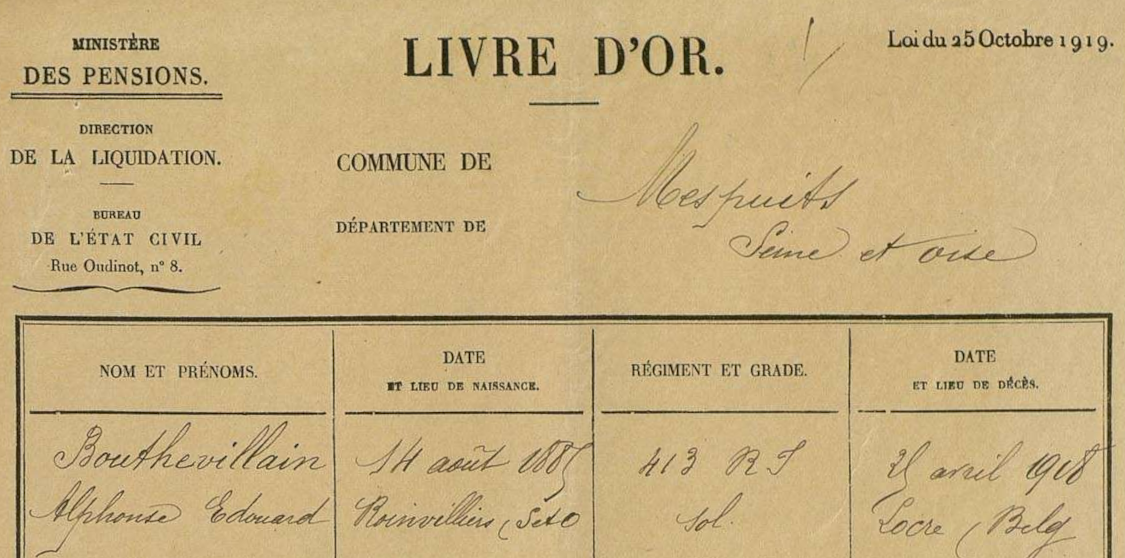 MINISTÈRE
DES PENSIONS.
DIRECTION
DE LA LIQUIDATION.
BUREAU
DE L'ÉTAT CIVIL
Rue Oudinot, n° 8.
LIVRE D'OR.
Loi du 25 Octobre 1919.
COMMUNE DE Mespuits
DÉPARTEMENT DE Seine et oise
NOM ET PRÉNOMS.
DATE
ET LIEU DE NAISSANCE.
RÉGIMENT ET GRADE.
DATE
ET LIEU DE DÉCÈS.
Bouthevillain
Alphonse Edouard
14 août 1885
Roinvilliers (S et O
413 R I
sol.
25 avril 1918
Locre (Belg